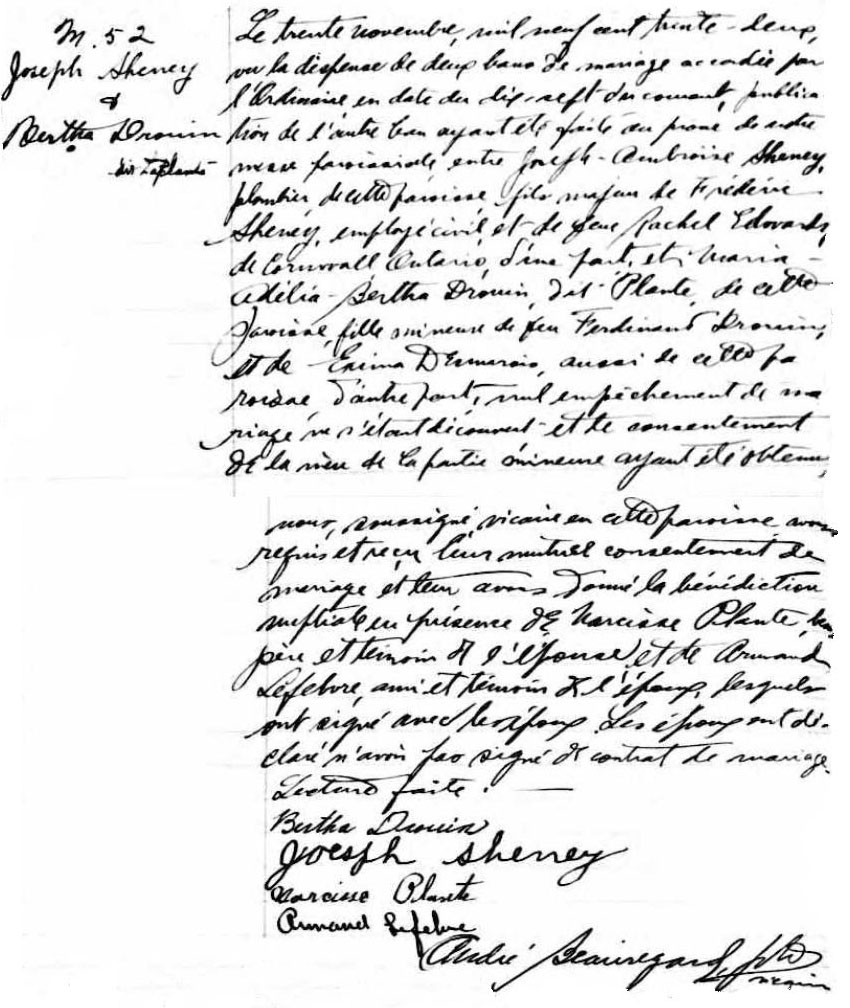 M. 52
Joseph Sheney
&
Bertha Drouin
dit Laplante
Le trente novembre, mil neuf cent trente-deux,
vu la dispense de deux bans de mariage accordée par
l'Ordinaire en date du dix-sept du courant, publica
tion de l'autre ban ayant été faite au prone de notre
messe paroissiale, entre Joseph-Ambroise Sheney,
plombier de cette paroisse, fils majeur de Frédéric
Sheney, employé civil, et de feue Rachel Edwards,
de Cornwall Ontario, d'une part, et, Maria-
Adélia-Bertha Drouin, dit Plante, de cette
paroisse, fille mineure de feu Ferdinand Drouin,
et de Exima Desmarais, aussi de cette pa
roisse d'autre part, nul empêchement de ma
riage ne s'étant découvert et le consentement
de la mère de la partie mineure ayant été obtenu,
nous, soussigné, vicaire en cette paroisse avons
requis et reçu leur mutuel consentement de
mariage et leur avons donné la bénédiction
nuptiale en présence de Narcisse Plante,
père et témoin de l'épouse, et de Armand
Lefebvre, ami et témoin de l'époux, lesquels
ont signé avec les époux. Les époux ont dé-
claré n'avoir pas signé de contrat de mariage.
Lecture faite. —
Bertha Drouin
Joesph Sheney
Narcisse Plante
Armand Lefebvre
André Beauregard, ptre
vicaire